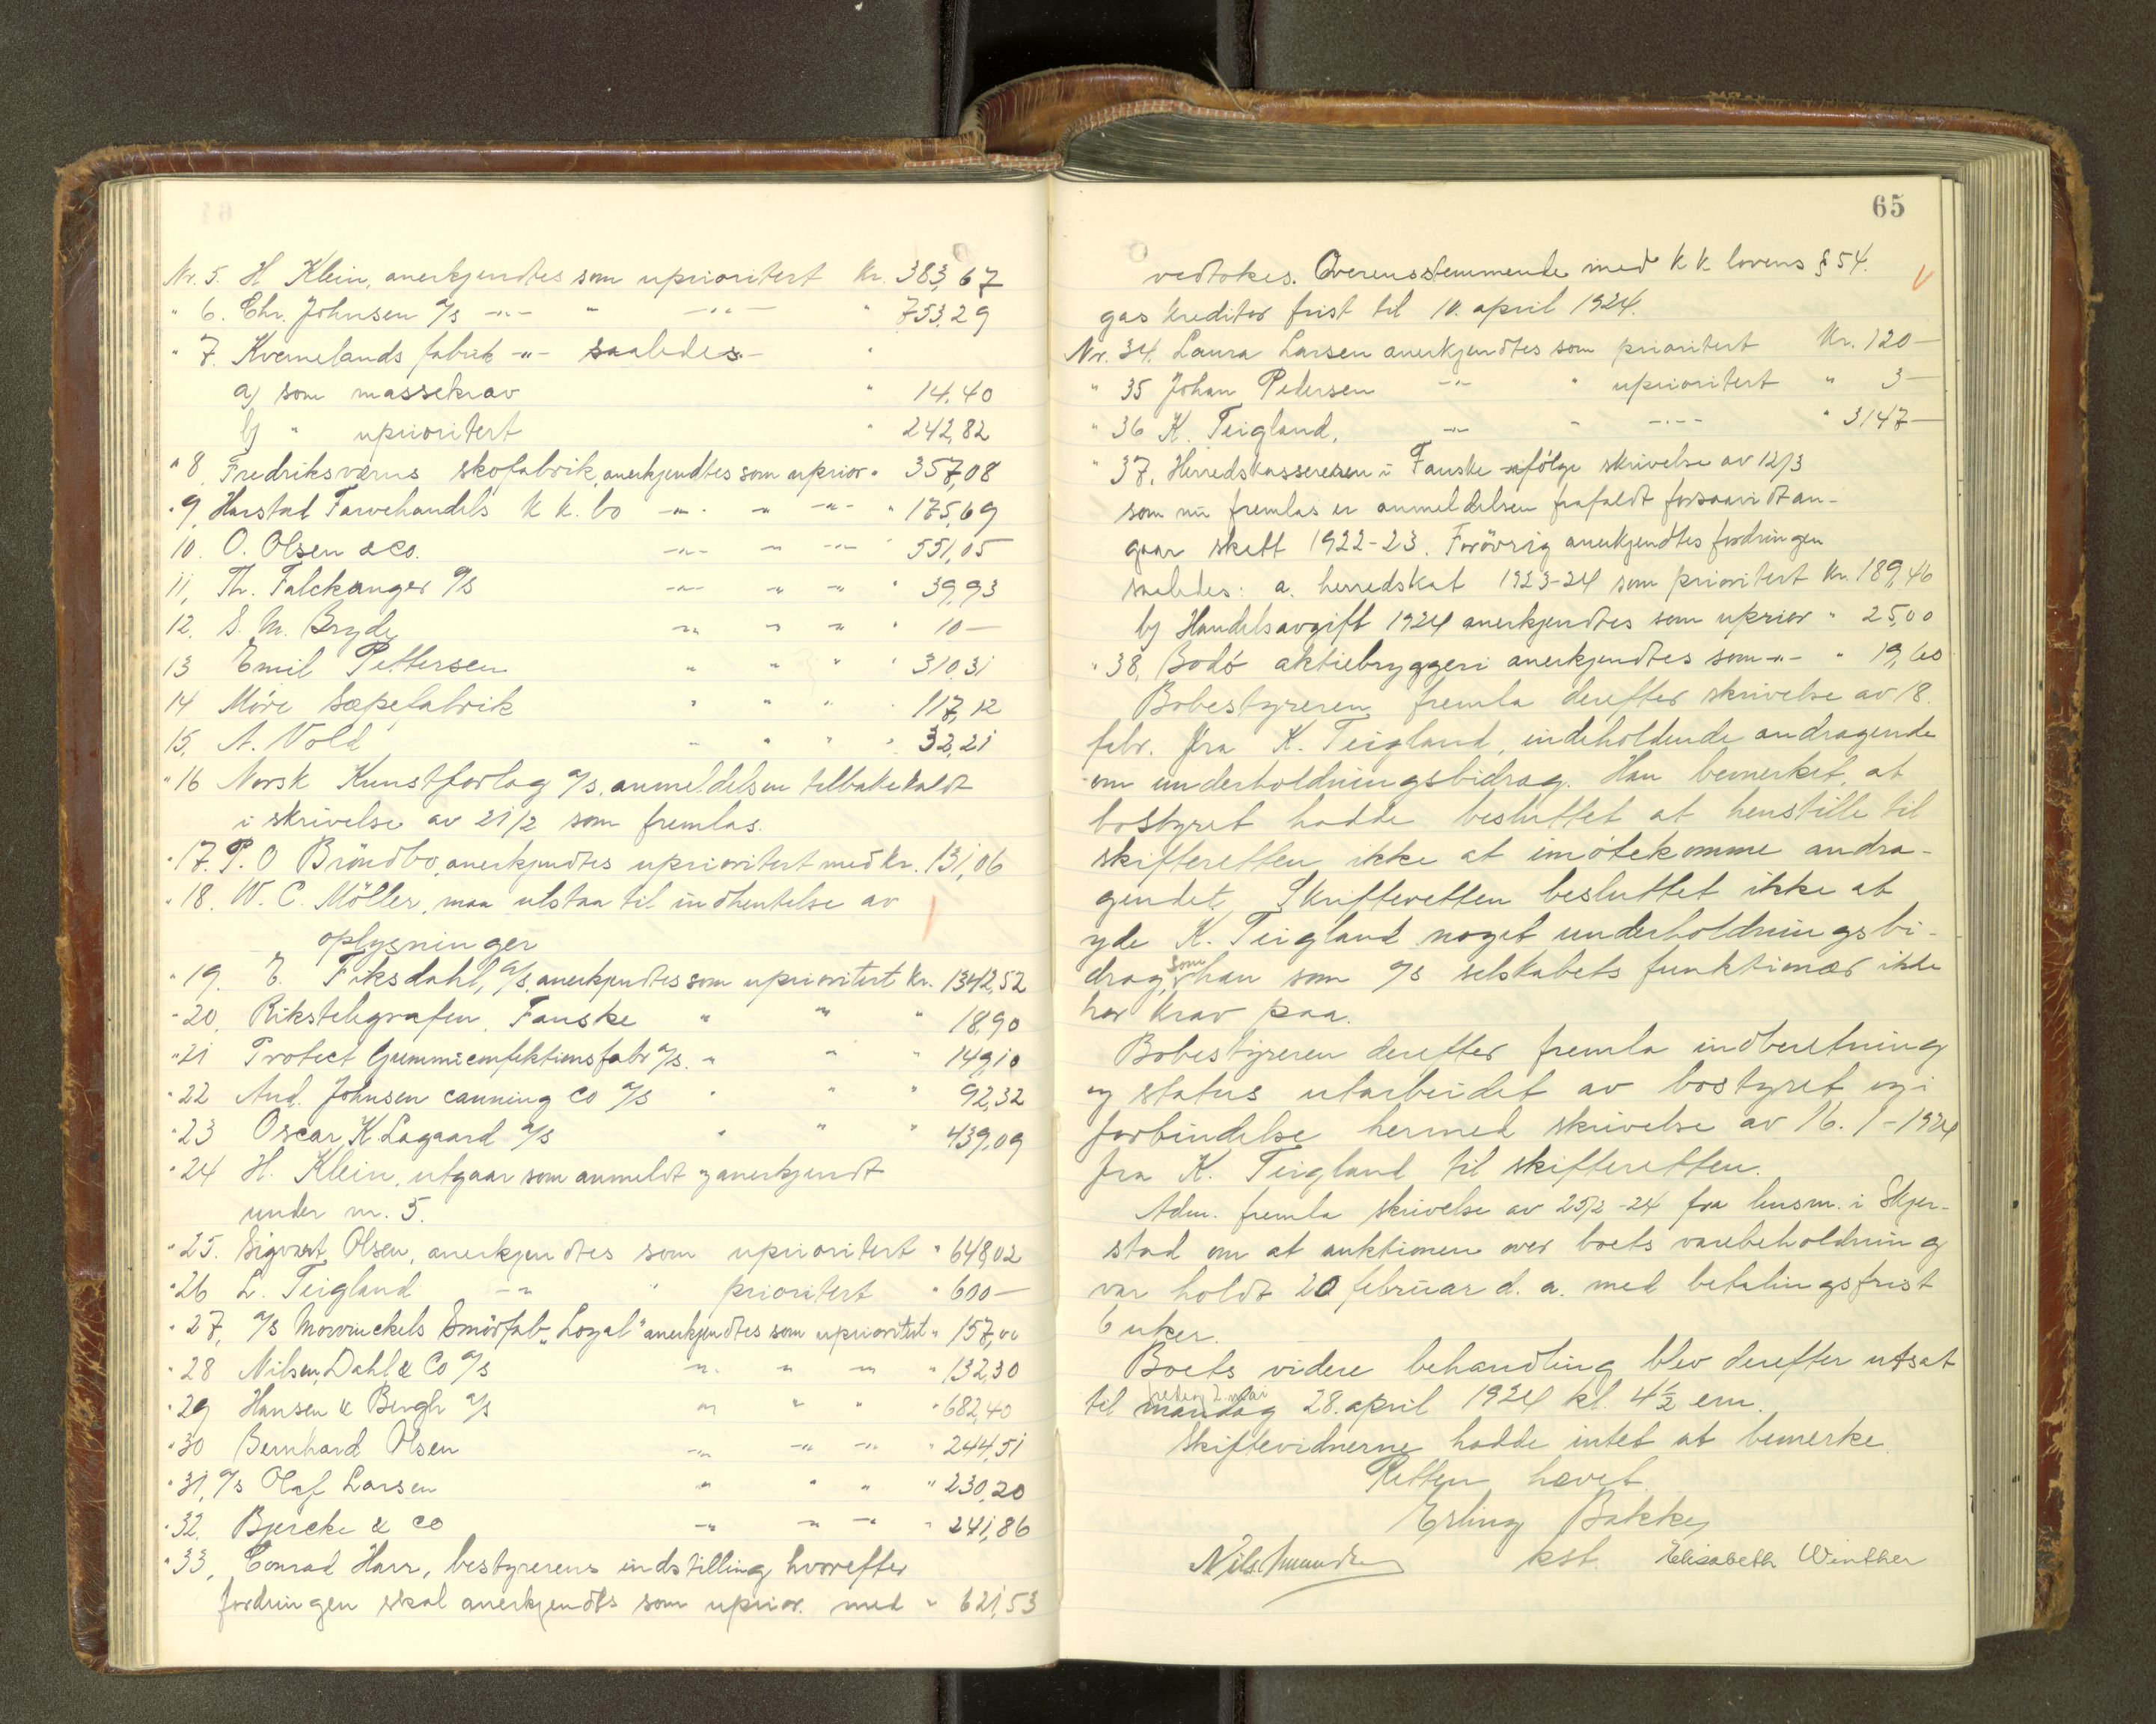 Nr. 5. H Klein, anerkjendtes som uprioritert Kr. 383,67
" 6. Chr. Johnsen A/s -"- " -"- " 753,29
" 7. Kvernelands fabrik -"- saaledes "
a) som massekrav " 14,40
b) " uprioritert " 242,82
" 8. Fredriksværns skofabrik, anerkjendtes som uprior " 357,08
" 9, Harstad Farvehandels k k. bo -"- " -"- " 175,69
10. O. Olsen & Co. -"- " -"- " 551,05
11, Th. Falckanger A/s -"- " " " 39,93
12. S. M. Bryde " " " " 10 —
13 Emil Pettersen " " " " 310,31
14 Möre Sæpefabrik " " " " 117,12
15, A. Vold " " " " 32,21
" 16 Norsk Kunstforlag A/s, anmeldelsen tilbakekaldt
i skrivelse av 21/2 som fremlas.
" 17. P. O Bröndbo, anerkjendtes uprioritert med kr. 131,06
" 18. W. C. Möller, maa utstaa til indhentelse av
oplysninger
" 19. E. Fiksdahl, A/s, anerkjendtes som uprioritert kr. 1342,52
" 20, Rikstelegrafen, Fauske " " " 18,90
" 21 Protect Gummiconfektionsfabr A/s. " " " 149,10
" 22 And. Johnsen canning Co A/s " " " 92,32
" 23 Oscar K Lagaard A/s " " " 439,09
" 24 H. Klein, utgaar som anmeldt og anerkjendt
under nr. 5.
" 25. Sigvart Olsen, anerkjendtes som uprioritert " 648,02
" 26 L. Teigland -"- " prioritert " 600 —
" 27, A/s Mowinckels Smörfab. "Loyal" anerkjendtes som uprioritert " 157,00
" 28 Nilsen, Dahl & Co A/s " " " " 132,30
" 29 Hansen & Bergh A/s " " " " 682,40
" 30 Bernhard Olsen -"- -"- -"- " 244,51
" 31, A/s Olaf Larsen " " " " 230,20
" 32. Bjercke & Co -"- -"- -"- " 241,86
" 33, Conrad Harr, bestyrerens indstilling hvorefter
fordringen skal anerkjendts som uprior. med " 621,53
65
vedtokes. Overensstemmende med k k lovens § 54.
gas kreditor frist til 10. april 1924.
Nr. 34. Laura Larsen anerkjendtes som prioritert Kr. 120 —
" 35 Johan Pedersen -"- " uprioritert " 3 —
" 36 K. Teigland, -"- " -"- " 3147 —
" 37. Herredskassereren i Fauske ifölge skrivelse av 12/3
som nu fremlas er anmeldelsen frafaldt forsaavidt an-
gaar skatt 1922-23. Forövrig anerkjendtes fordringen
saaledes: a. herredskat 1923-24 som prioritert Kr. 189,46
b) Handelsavgift 1924 anerkjendtes som uprior " 25,00
" 38, Bodö aktiebryggeri anerkjendtes som -"- " 19,60
Bobestyreren fremla derefter skrivelse av 18.
febr. fra K. Teigland, indeholdende andragende
om underholdningsbidrag. Han bemerket, at
bostyret hadde besluttet at henstille til
skifteretten ikke at imötekomme andra-
gendet. Skifteretten besluttet ikke at
yde K. Teigland noget underholdningsbi-
drag, som han som A/s selskabets funktionær ikke
har krav paa.
Bobestyreren derefter fremla indberetning
og status utarbeidet av bostyret og i
forbindelse hermed skrivelse av 16. 1-1924
fra K. Teigland til skifteretten.
Adm. fremla skrivelse av 25/2-24 fra lensm. i Skjer-
stad om at auktionen over boets varebeholdning
var holdt 20 februar d. a. med betalingsfrist
6 uker.
Boets videre behandling blev derefter utsat
fredag 2. mai
til mandag 28. april 1924 kl. 4 1/2 em.
Skiftevidnerne hadde intet at bemerke
Retten hævet.
Erling Bakke
kst. Elisabeth Winther